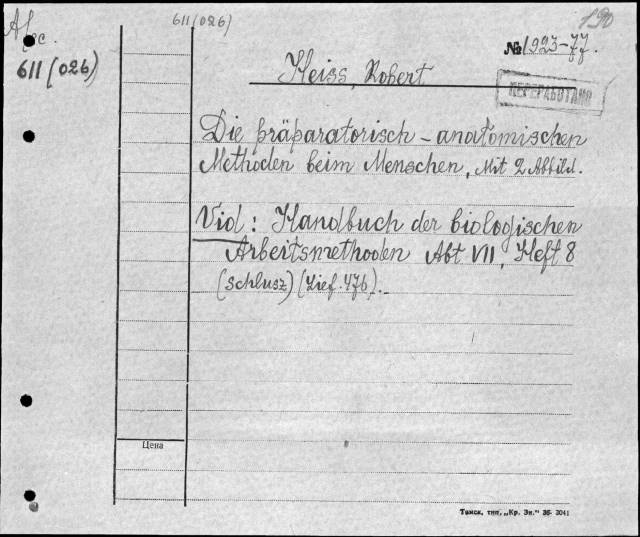 611 (026)
190
611 (026)
№ 1923-77.
Heiss, Robert
ПЕРЕРАБОТАНО
Die präparatorisch-anatomischen
Methoden beim Menschen, Mit 2 Abbild.
Vid: Handbuch der biologischen
Arbeitsmethoden Abt VII, Heft 8
(Schlusz) (Lief. 476).
Цена
Томск, тип. „Кр. Зн." 36- 3041